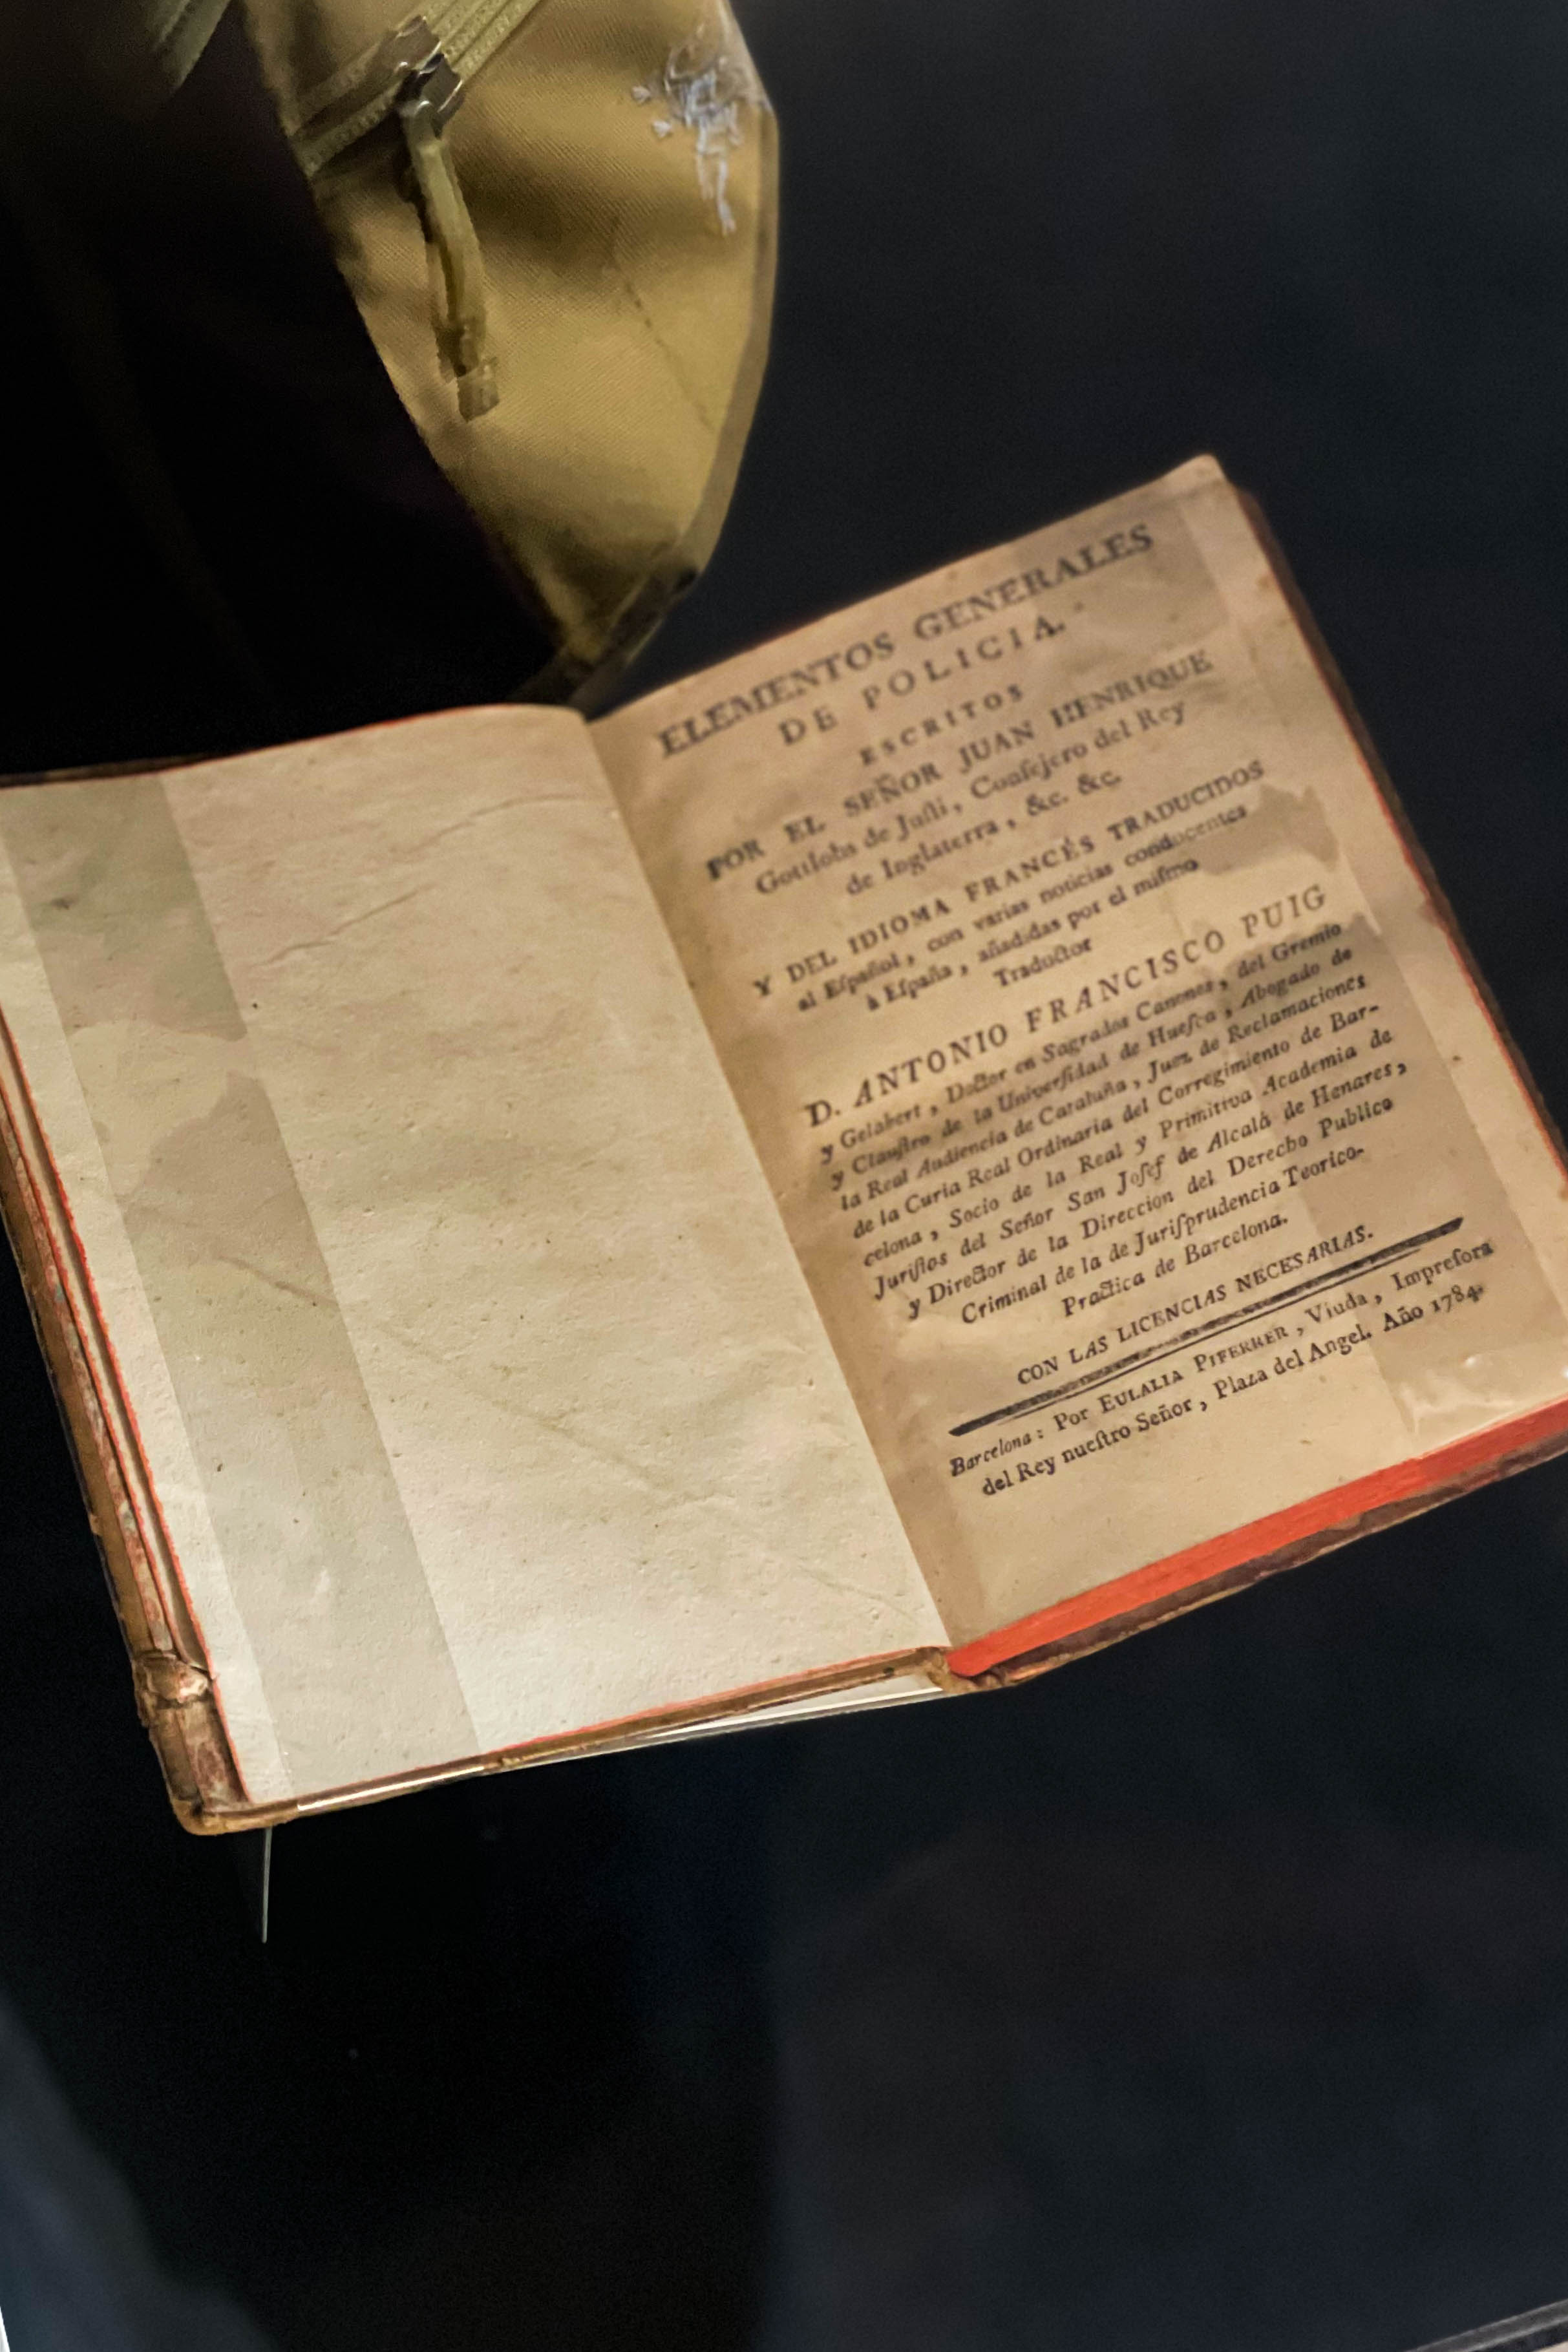 ELEMENTOS GENERALES
DE POLICIA.
ESCRITOS
POR EL SEÑOR JUAN HENRIQUE
Gottlobs de Juſti, Conſejero del Rey
de Inglaterra, &c. &c.
Y DEL IDIOMA FRANCÉS TRADUCIDOS
al Eſpañol, con varias noticias conducentes
à Eſpaña, añadidas por el miſmo
Traductor
D. ANTONIO FRANCISCO PUIG
y Gelabert, Doctor en Sagrados Canones, del Gremio
y Clauſtro de la Univerſidad de Hueſca, Abogado de
la Real Audiencia de Cataluña, Juez de Reclamaciones
de la Curia Real Ordinaria del Corregimiento de Bar-
celona, Socio de la Real y Primitiva Academia de
Juriſtas del Señor San Joſef de Alcalá de Henares,
y Director de la Direccion del Derecho Publico
Criminal de la de Juriſprudencia Teorico-
Practica de Barcelona.
CON LAS LICENCIAS NECESARIAS.
Barcelona: Por EULALIA PIFERRER, Viuda, Impreſora
del Rey nueſtro Señor, Plaza del Angel. Año 1784.